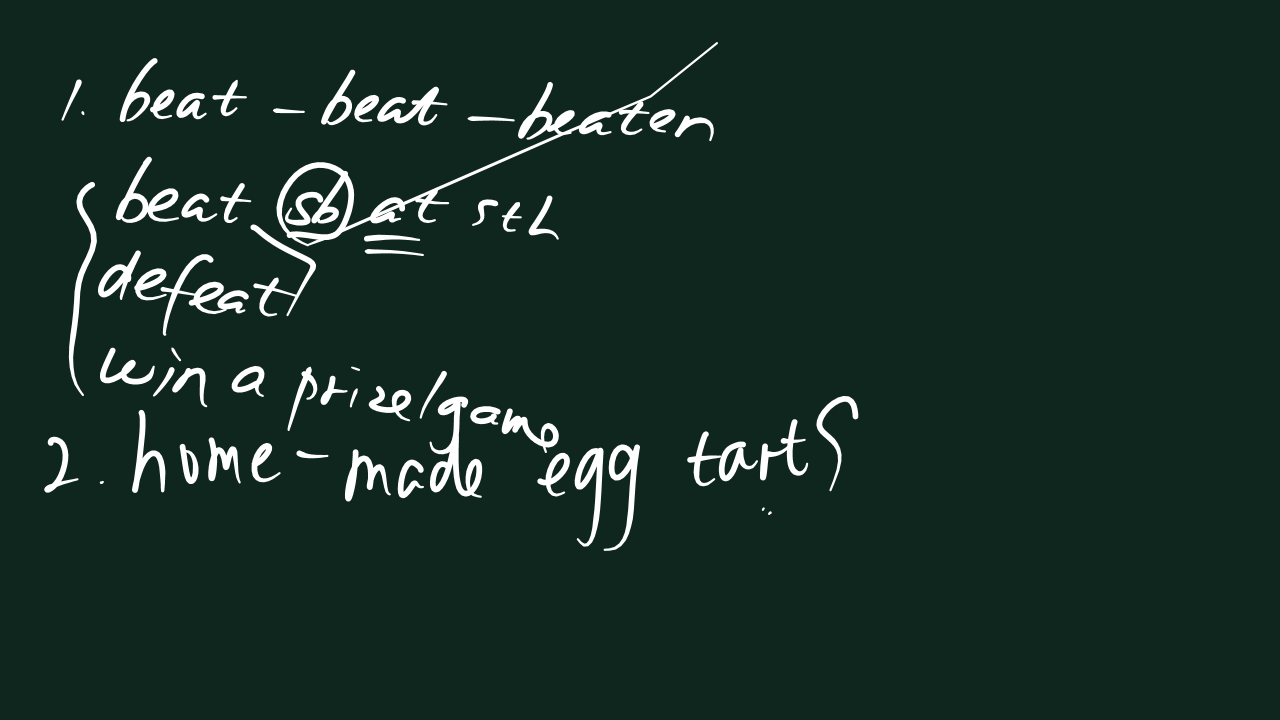 1. beat - beat - beaten
beat sb at sth
defeat
win a prize/game
2. home-made egg tarts